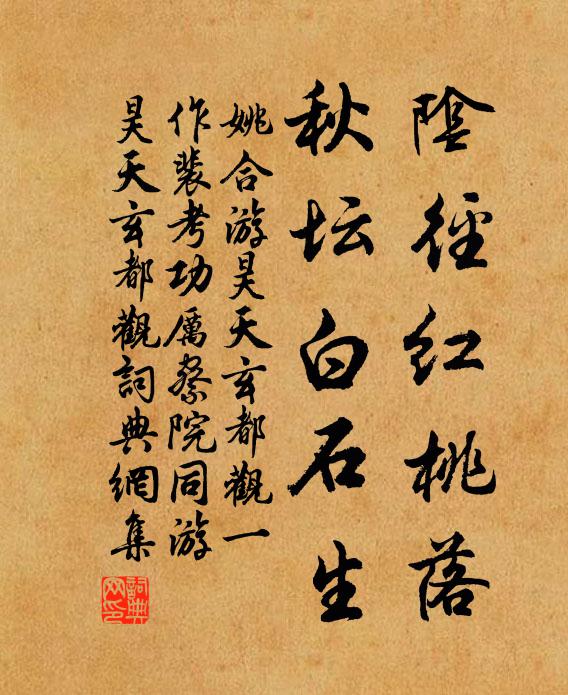 陰徑红桃落
秋坛白石生
姚合游昊天玄都觀一
作裴考功厲察院同游
昊天玄都觀詞典網集
詞典
网印